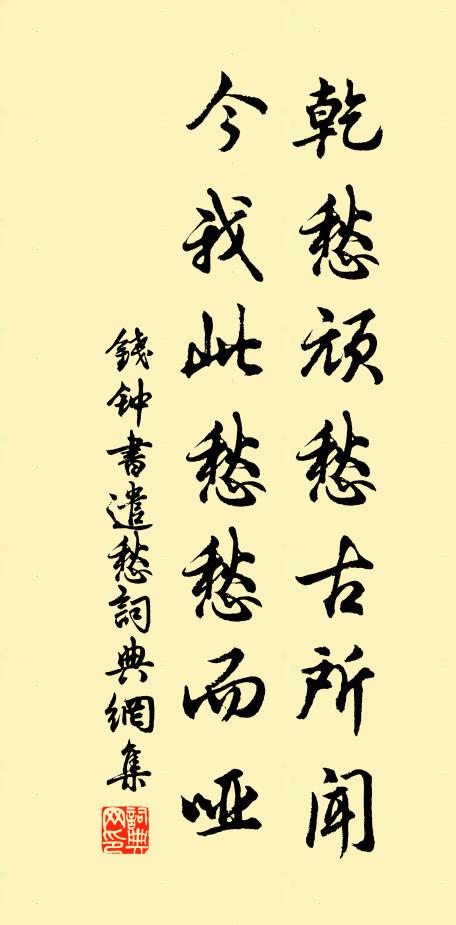 乾愁顽愁古所闻
今我此愁愁而哑
錢钟書遣愁詞典網集
詞典网印